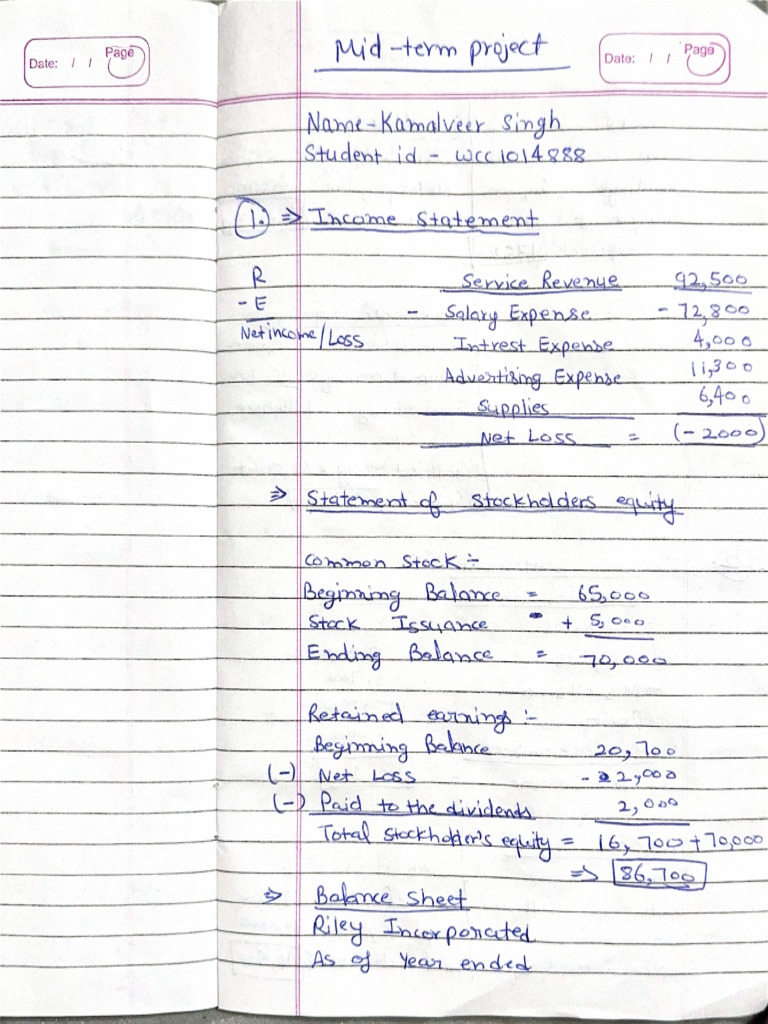 Date: / / Page
Mid-term project
Date: / / Page
Name-Kamalveer Singh
Student id - wcc1014888
1. ⇒ Income Statement
R Service Revenue 92,500
- E - Salary Expense - 72,800
Net income/Loss Intrest Expense 4,000
Advertising Expense 11,300
Supplies 6,400
Net Loss = (-2000)
⇒ Statement of Stockholders equity
Common Stock :-
Beginning Balance = 65,000
Stock Issuance + 5,000
Ending Balance = 70,000
Retained earnings :-
Beginning Balance 20,700
(-) Net Loss - 2,000
(-) Paid to the dividents 2,000
Total stockholder's equity = 16,700 + 70,000
⇒ 86,700
⇒ Balance Sheet
Riley Incorporated
As of Year ended